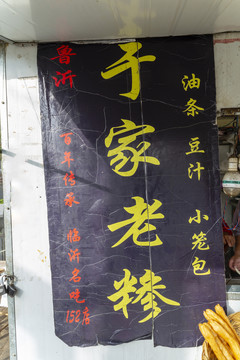 鲁沂
百年传承 临沂名吃
158店
于家老糁
油条 豆汁 小笼包